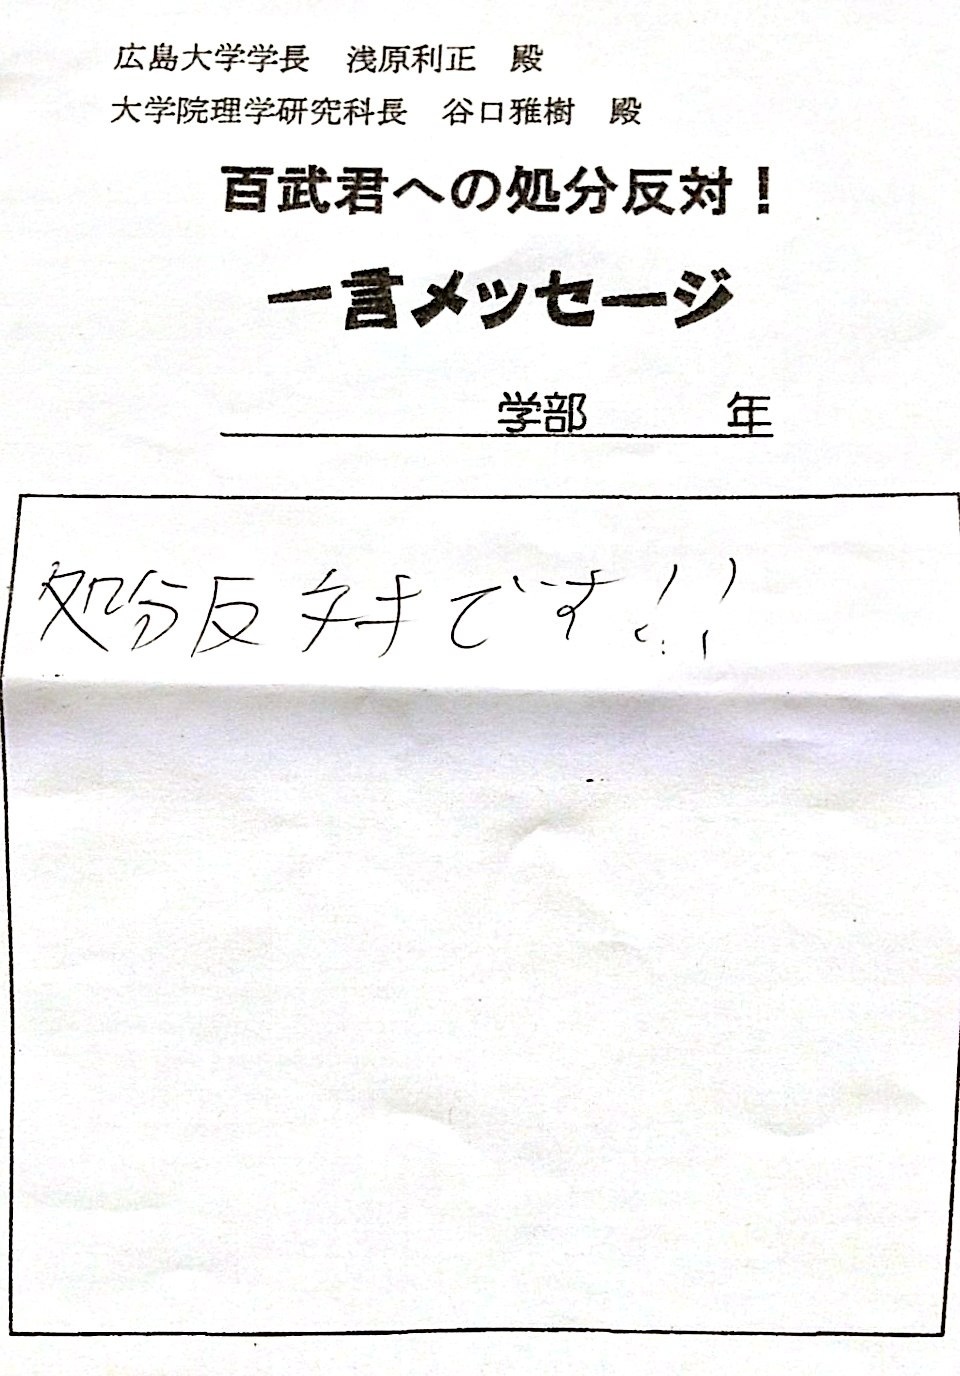 広島大学学長　浅原利正　殿
大学院理学研究科長　谷口雅樹　殿
百武君への処分反対！
一言メッセージ
学部　　年
処分反対です!!